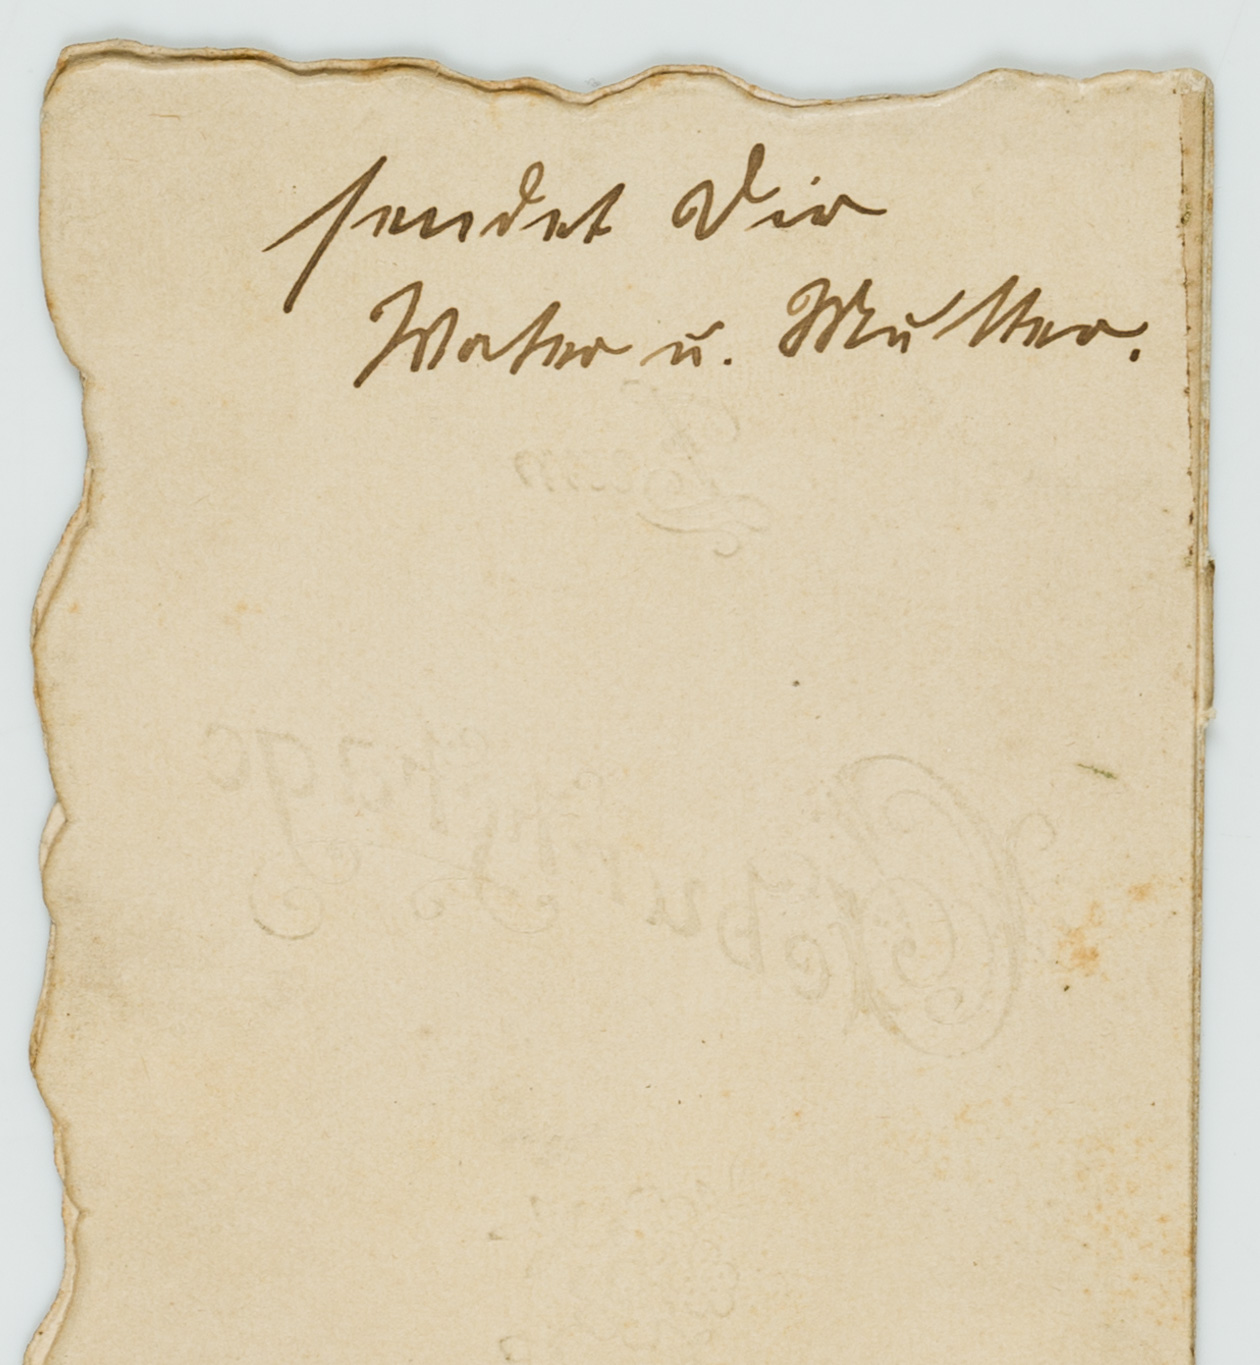 sendet Dir
Vater u. Mutter.